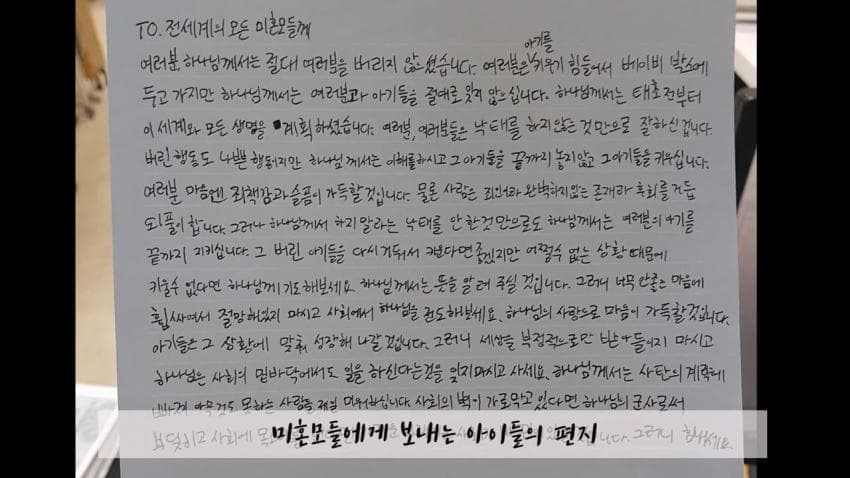 TO. 전세계의 모든 미혼모들께
여러분, 하나님께서는 절대 여러분을 버리지 않으셨습니다. 여러분은 아기를 키우기 힘들어서 베이비 박스에
두고 가지만 하나님께서는 여러분과 아기들을 절대로 잊지 않으십니다. 하나님께서는 태초 전부터
이 세계와 모든 생명을 계획하셨습니다. 여러분, 여러분들은 낙태를 하지 않은 것 만으로 잘하신 겁니다.
버린 행동도 나쁜 행동이지만 하나님께서는 이해를 하시고 그 아기들을 끝까지 놓지 않고 그 아기들을 키우십니다.
여러분 마음엔 죄책감과 슬픔이 가득할 것입니다. 물론 사람은 죄인이라 완벽하지 않는 존재라 후회를 거듭
되풀이 합니다. 그러나 하나님께서 하지 말라는 낙태를 안 한 것 만으로도 하나님께서는 여러분의 아기를
끝까지 지키십니다. 그 버린 아기들을 다시 거둬서 키운다면 좋겠지만 어쩔수 없는 상황 때문에
키울수 없다면 하나님께 기도해보세요. 하나님께서는 뜻을 알려 주실 것입니다. 그러니 너무 안좋은 마음에
휩싸여서 절망해있지 마시고 사회에서 하나님을 전도해보세요. 하나님의 사랑으로 마음이 가득할 것입니다.
아기들은 그 상황에 맞춰 성장해 나갈 것입니다. 그러니 세상을 부정적으로만 받아들이지 마시고
하나님은 사회의 밑바닥에서도 일을 하신다는 것을 잊지마시고 사세요. 하나님께서는 사탄의 계획에
빠져 아무것도 못하는 사람을 제일 미워하십니다. 사회의 벽이 가로막고 있다면 하나님의 군사로써
부딪히고 사회에 그러니 힘내세요.
미혼모들에게 보내는 아이들의 편지